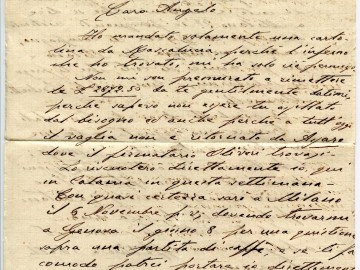 Caro Angelo
Ho mandato solamente una cartolina
da Mascalucia, perchè l'inferno
che ho trovato, mi ha solo ciò permesso
Non mi son premurato a rimettere
le £ da te gentilmente datimi
perchè sapevo non avere tu
dal bisogno ed anche perchè a tutt'oggi
il vaglia non è ritornato da
dove il firmatario trovasi.
Lo riscuoterò direttamente io, qui
in Catania in questa settimana-
Con quasi certezza sarò a Milano
il 6 Novembre p.v; dovendo trovarmi
a Genova il giorno 8 per una quistione
sopra una partita di caffè e se ti fa
comodo potrei portare io direttamente